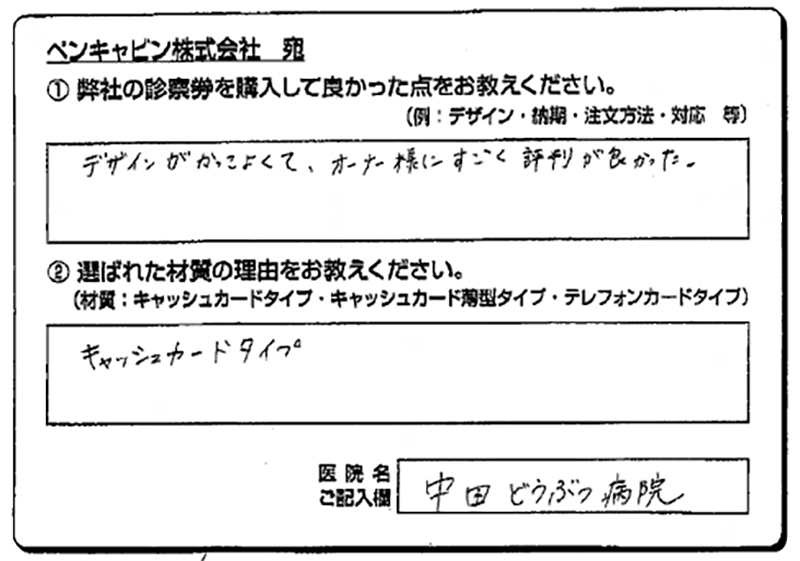 ペンキャビン株式会社　宛
① 弊社の診察券を購入して良かった点をお教えください。
（例：デザイン・納期・注文方法・対応　等）
デザインがかっこよくて、オーナー様にすごく評判が良かった。
② 選ばれた材質の理由をお教えください。
（材質：キャッシュカードタイプ・キャッシュカード薄型タイプ・テレフォンカードタイプ）
キャッシュカードタイプ
医院名
ご記入欄
中田どうぶつ病院